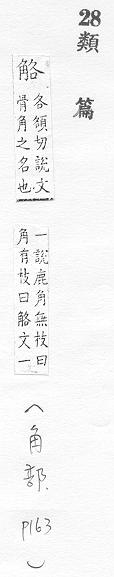 28
類篇
觡
各頟切說文
骨角之名也
一說鹿角無枝曰
角有枝曰觡文一
(角部. p163)